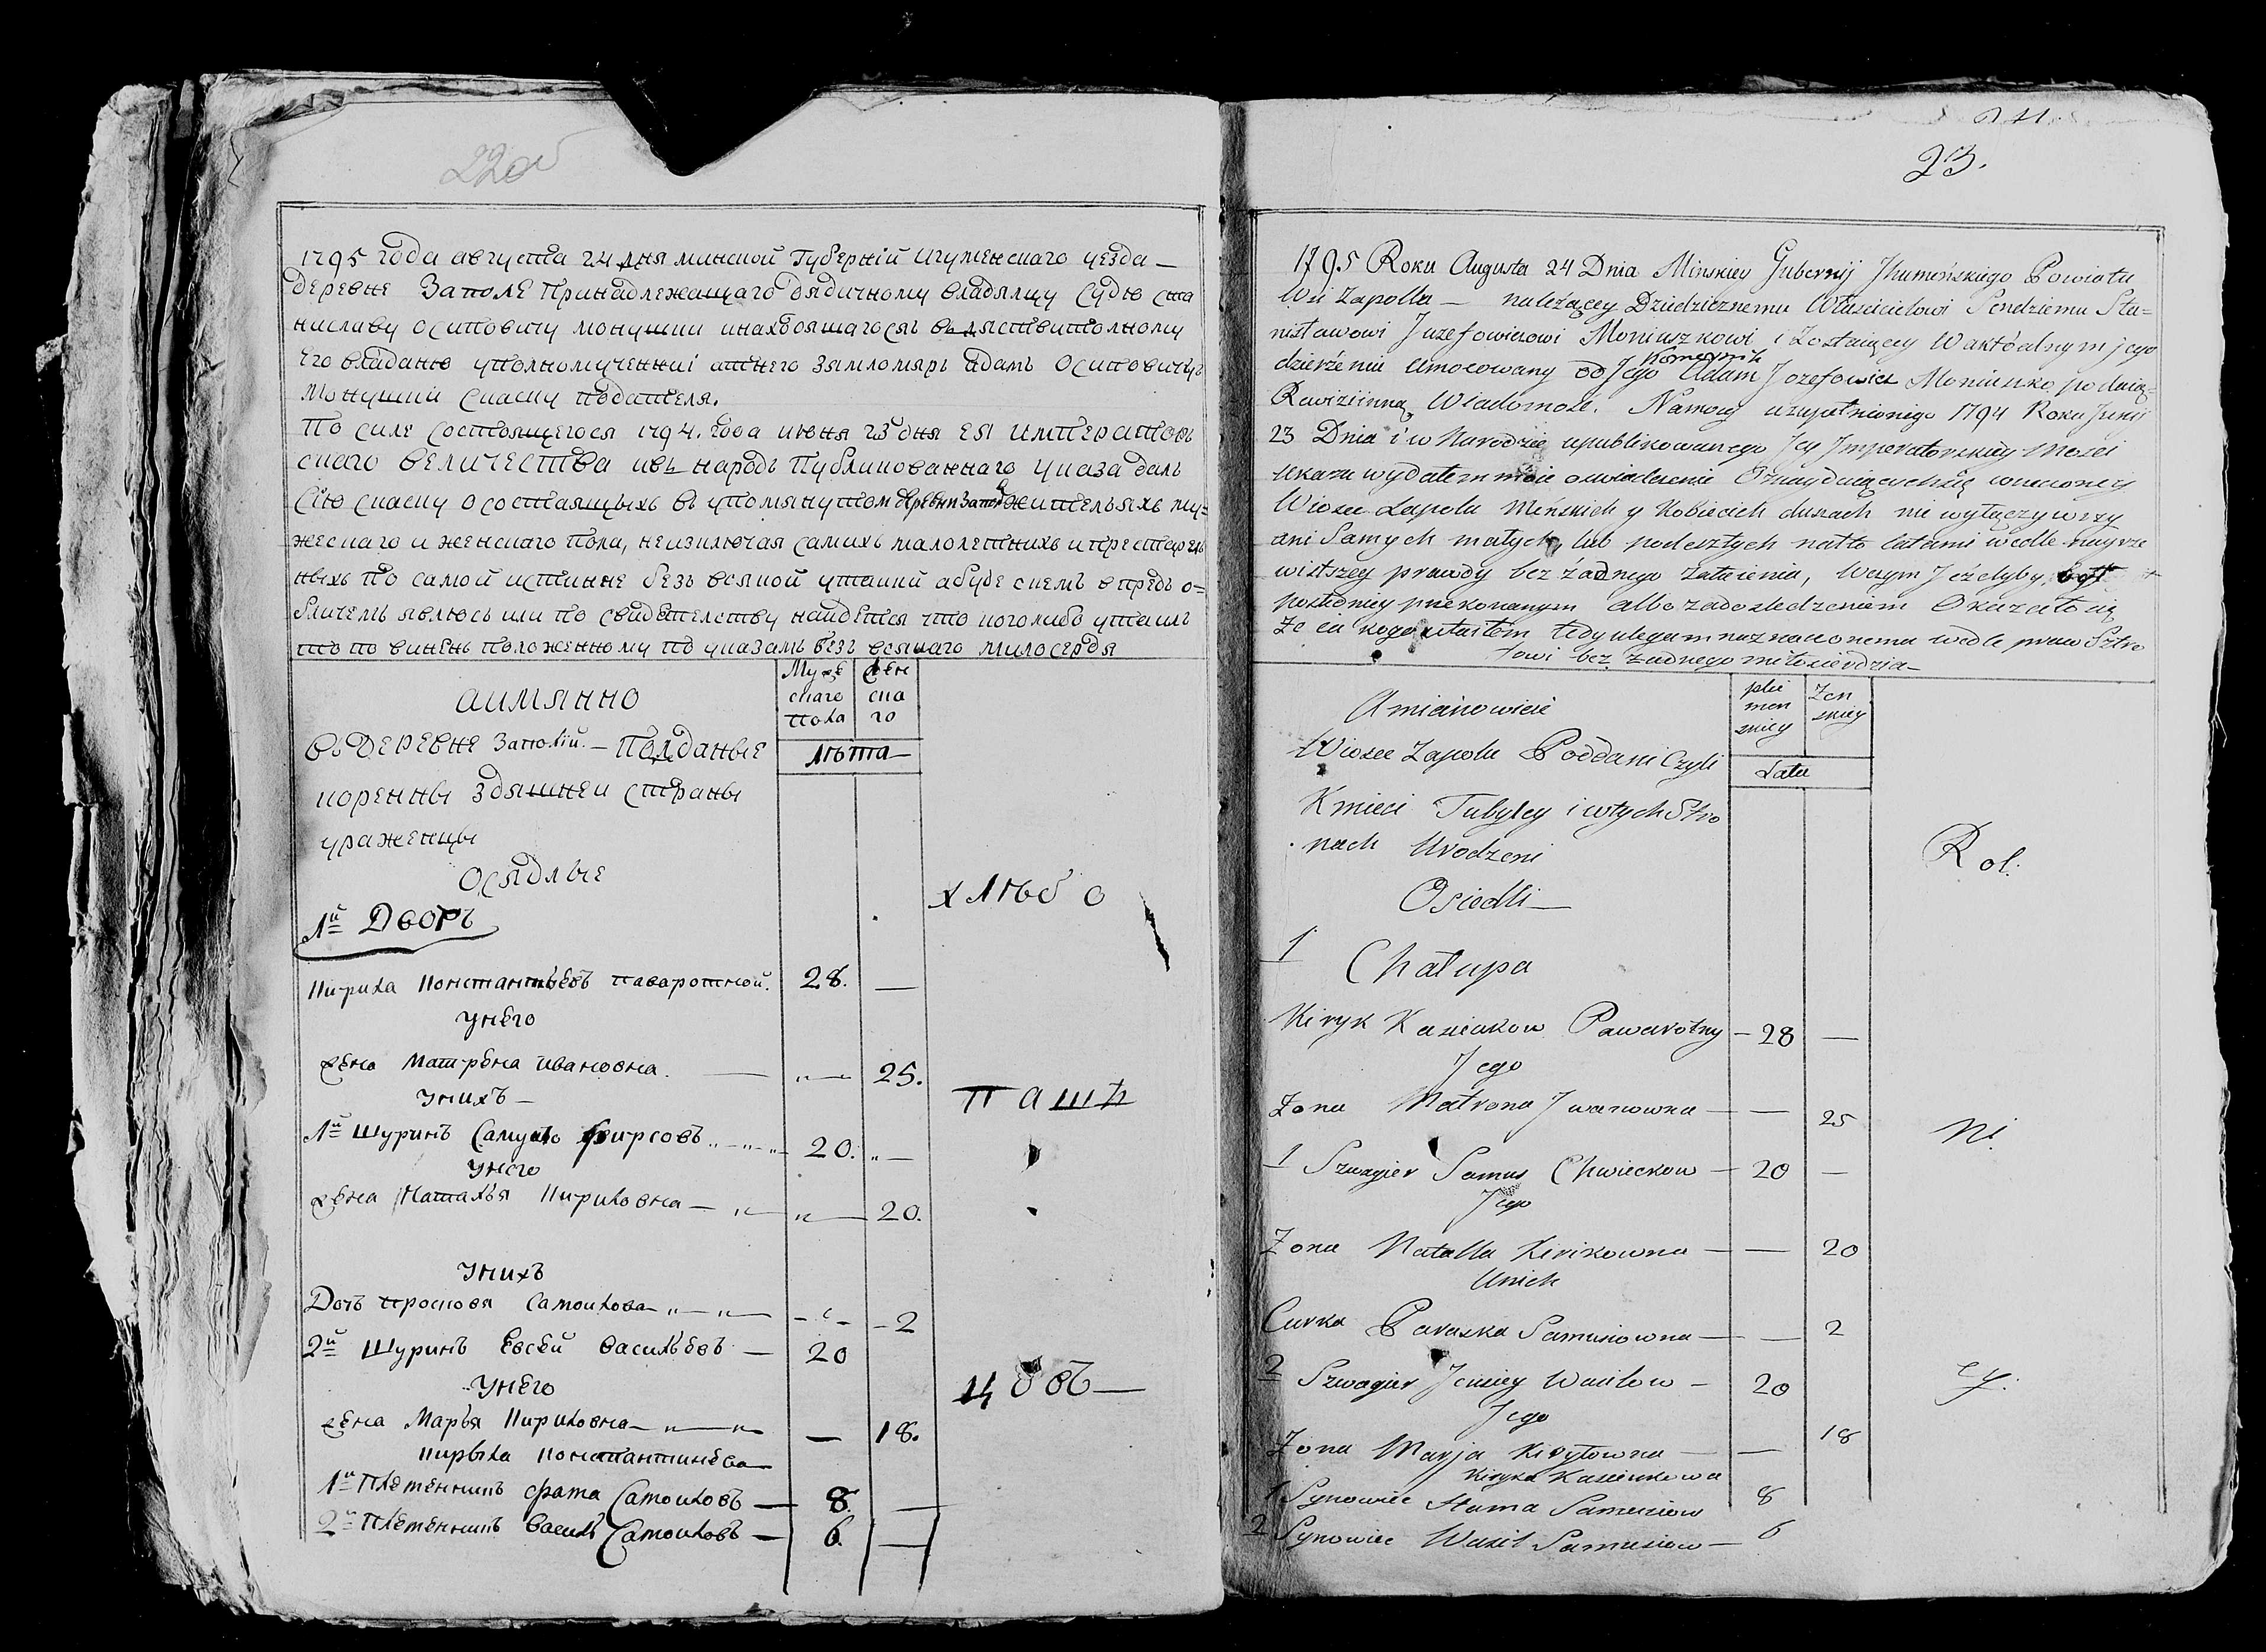 22об
1795 года августа 24 дня минской Губерніи игуменскаго уезда —
деревне Заполе Принадлежащаго дядичному владялцу Судю Ста
ниславу осиповичу монушки инаходящагосяъ
Его владаню уполномученниі атнего Замломяръ Адамъ Осиповичъ
Монушки Скаску подателя.
По силе состоящегося 1794. года июня 23 дня ЕЯ ИМПЕРАТОРЪ
скаго ВЕЛИЧЕСТВА ивъ народъ Публикованнаго указа далъ
Сію скаску о состаящыхъ въ упомянутом деревни Запо жителяхъ му=
жескаго и женскаго пола, неизключая самихъ малолетнихъ и престарелъ
ныхъ по самой истинне безъ всякой утаики а буде скемъ впредь о=
бличемъ явлюсь или по свидетелству наидется что кого либо утаилъ
то по виненъ положенному по указамъ безъ всякаго милосердя
аимянно
Муже
скаго
пола
жен
ска
го
лѣта
въ ДЕРЕВНЕ Заполій. — Подданые
коренны здяшнеи страны
ураженцы
Осядлые
1й Дворъ
хлѣбо
Кирила Константьевъ паваротной. 28. —
У него
жена Матрена Ивановна. — 25.
У нихъ —
пашъ
1й Шуринъ Самуло Фирсовъ 20. —
У него
жена Наталья Кириловна — — 20.
У нихъ
Дочъ Просковя Самойлова — — 2
2й Шуринъ Евсей Васильевъ — 20
У него
цовъ —
жена Марья Кириловна — — 18.
Кирыла Константинева
1й Племенникъ фама Самоиловъ — 8. —
2й Племенникъ Василь Самоиловъ — 6. —
23.
1795 Roku Augusta 24 Dnia Minskiey Gubernij Ihumeńskiego Powiatu
Wsi Zapolla — należącey Dziedzicznemu Właścicielowi Sendziemu Sta=
nisławowi Juzefowiczowi Moniuszkowi i Zostaiącey W aktóalnym jego
dzierżeniu Umocowany od Jego Komornik Adam Jozefowicz Moniuszko podaię
Rewiziinną Wiadomość. Namocy uzupełnionego 1794 Roku Junii
23 Dnia i w Narodzie upublikowanego Jey Imperatorskiey Mości
ukazu wydałem moie oswiadczenie Oznaydującychsię wrzeczoney
Wiosce Zapolu Męskich y Kobiecich duszach nie wyłączywszy
ani Samych małych, lub podeszłych natto latami wedle nayrze
wistszey prawdy bez żadnego zataienia, Wczym Jeżelyby
pośledniey przekonanym albo zadosledzeniem Okazało się
że ia kogo utaiłem tedy ulegam naznaczonemu wedle praw Sztro
fowi bez żadnego miłosierdzia —
Amianowicie
płci
męz
zkiey
Żen
skiey
Lata
Wiosce Zapolu Poddani Czyli
Kmieci Tubylcy i wtych Stro
nach Urodzeni
Osiedli —
Rol.
1 Chałupa
Kiryk Kasieukow Pawarotny — 28 —
Jego
Żona Matrona Iwanowna — — 25
Ni.
1 Szwagier Samus Chwieckow — 20 —
Jego
Żona Natalla Kirikowna — — 20
Unich
Curka Paraska Samusiowna — — 2
2 Szwagier Jeusiey Wasilow — 20
cy.
Jego
Żona Marja Kirylowna — — 18
Kiryka Kasieukowa
1 Synowiec Hama Samusiow 8
2 Synowiec Wasil Samusiow — 6